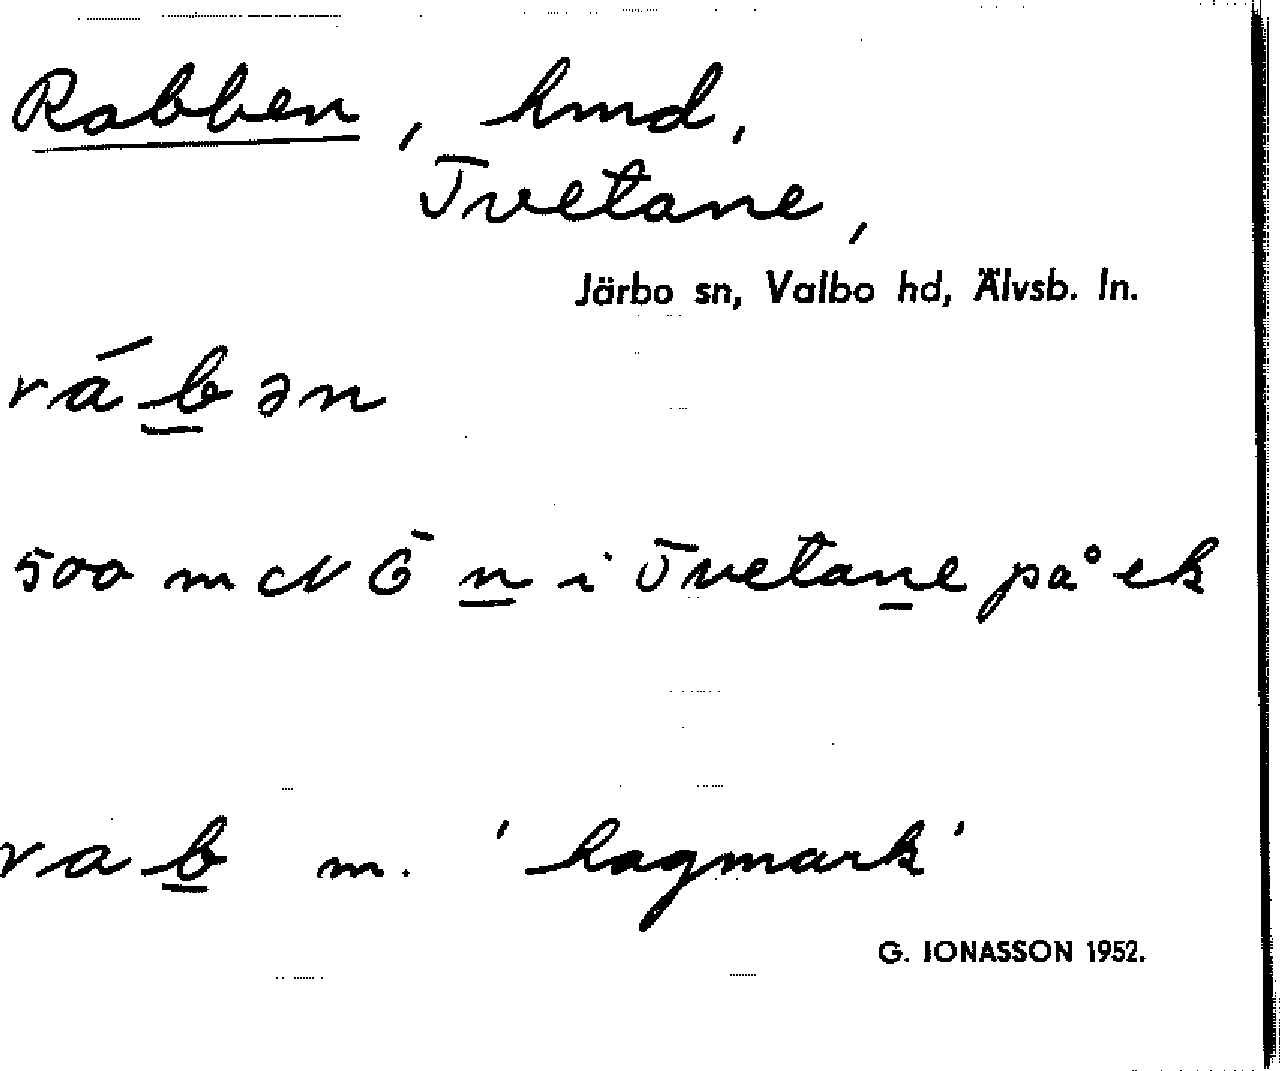 Rabben, hmd,
Tvetane,
Järbo sn, Valbo hd, Älvsb. ln.
rábən
500 m NÖ n i Tvetane på ek
rab m. 'hagmark'
G. IONASSON 1952.